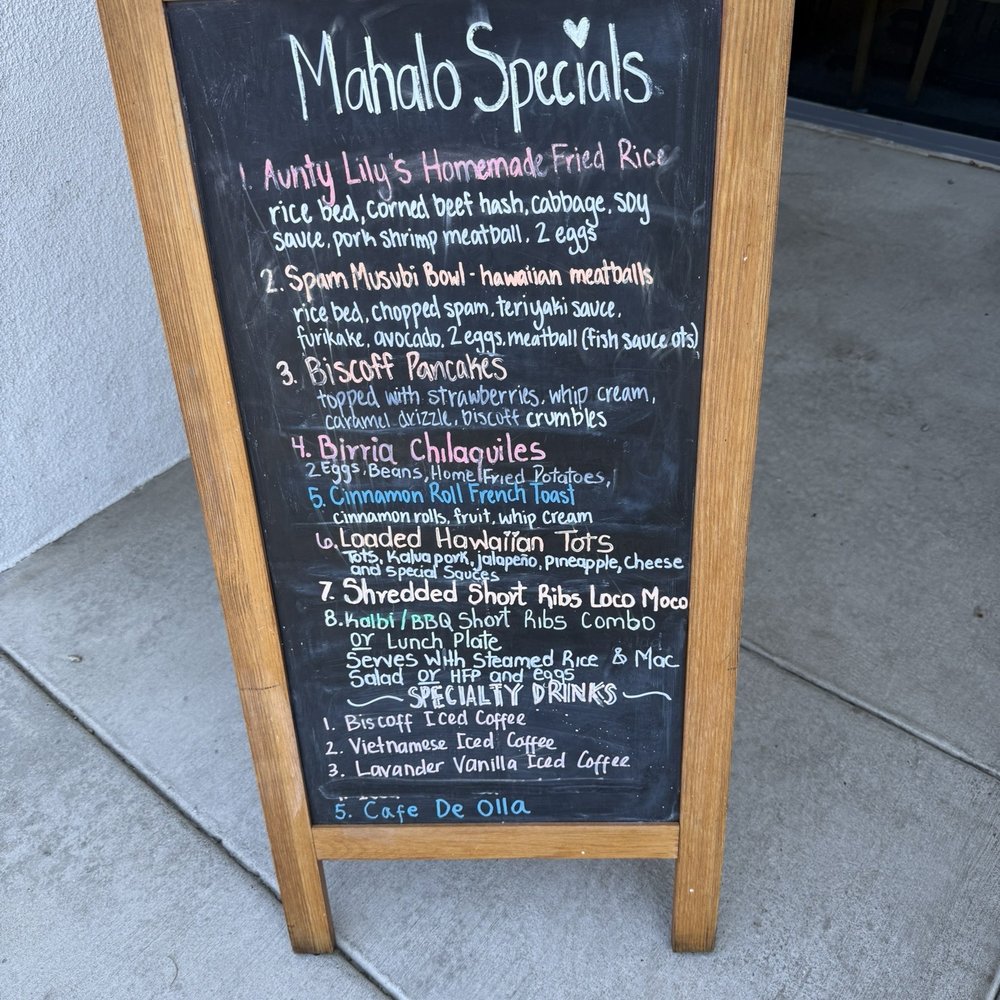 Mahalo Specials
1. Aunty Lily's Homemade Fried Rice
rice bed, corned beef hash, cabbage, soy
sauce, pork shrimp meatball, 2 eggs
2. Spam Musubi Bowl - hawaiian meatballs
rice bed, chopped spam, teriyaki sauce,
furikake, avocado, 2 eggs, meatball (fish sauce ots)
3. Biscoff Pancakes
topped with strawberries, whip cream,
caramel drizzle, biscoff crumbles
4. Birria Chilaquiles
2 Eggs, Beans, Home Fried Potatoes,
5. Cinnamon Roll French Toast
cinnamon rolls, fruit, whip cream
6. Loaded Hawaiian Tots
Tots, Kalua pork, jalapeño, pineapple, cheese
and special sauces
7. Shredded Short Ribs Loco Moco
8. Kalbi/BBQ Short Ribs Combo
or Lunch Plate
Serves with Steamed Rice & Mac
Salad or HFP and eggs
SPECIALTY DRINKS
1. Biscoff Iced Coffee
2. Vietnamese Iced Coffee
3. Lavander Vanilla Iced Coffee
5. Cafe De Olla